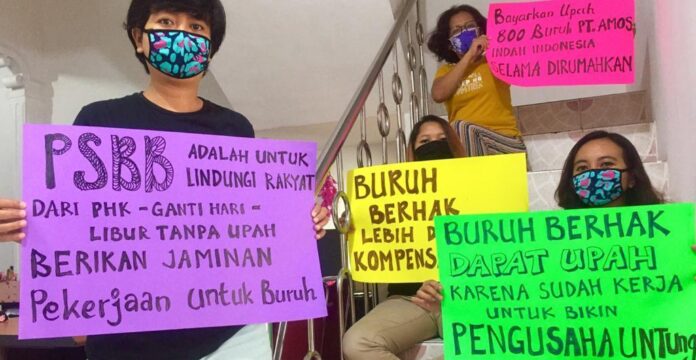 PSBB ADALAH UNTUK
LINDUNGI RAKYAT
DARI PHK - GANTI HARI -
LIBUR TANPA UPAH
BERIKAN JAMINAN
Pekerjaan Untuk Buruh
Bayarkan Upah
800 Buruh PT. AMOS
INDAH INDONESIA
SELAMA DIRUMAHKAN
BURUH
BERHAK
LEBIH
KOMPENSA
BURUH BERHAK
DAPAT UPAH
KARENA SUDAH KERJA
UNTUK BIKIN
PENGUSAHA UNTUNG